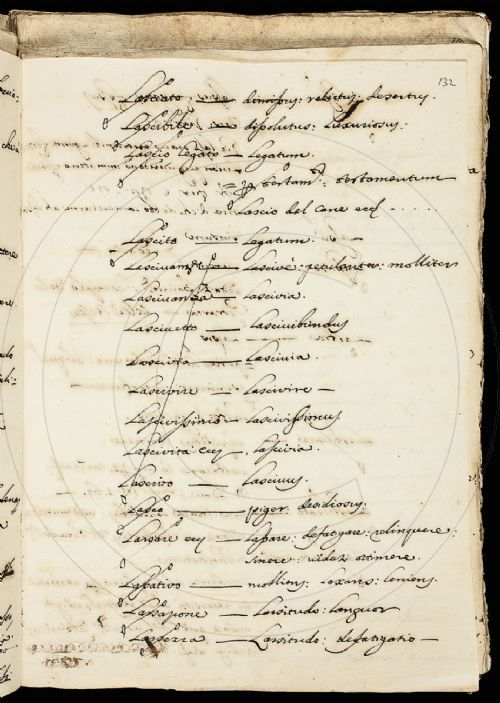 132
Lasciato — dimissus: relictus: desertus.
Lascibile — dissolutus: luxuriosus.
Lascio legato — Legatum.
testam.to: testamentum
Lascio del cane ecc
Lascito — Legatum.
Lascivam.te — Lascivè: petulanter: molliter
Lascivanza — Lascivia.
Lascivetto — Lascivibundus
Lascivia — Lascivia.
Lascivire — Lascivire —
Lascivissimo — Lascivissimus
Lascivita ecc — Lascivia.
Lascivo — Lascivus.
Lasso — piger: desidiosus.
Lassare ecc — Lassare: defatigare: relinquere:
sinere:
Lassativo — molliens: laxans: leniens.
Lassazione — Lassitudo: Languor
Lassezza — Lassitudo: defatigatio —